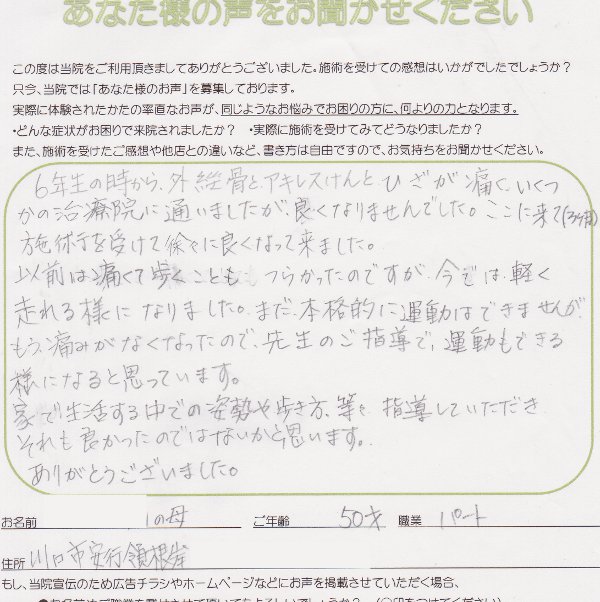 あなた様の声をお聞かせください
この度は当院をご利用頂きましてありがとうございました。施術を受けての感想はいかがでしたでしょうか?
只今、当院では「あなた様のお声」を募集しております。
実際に体験されたかたの率直なお声が、同じようなお悩みでお困りの方に、何よりの力となります。
・どんな症状がお困りで来院されましたか? ・実際に施術を受けてみてどうなりましたか?
また、施術を受けたご感想や他店との違いなど、書き方は自由ですので、お気持ちをお聞かせください。
6年生の時から、外脛骨と、アキレスけんと、ひざが痛く、いくつ
かの治療院に通いましたが、良くなりませんでした。ここに来て(3ヶ月)
施術を受けて徐々に良くなって来ました。
以前は痛くて歩くことも つらかったのですが、今では、軽く
走れる様に なりました。まだ、本格的に運動はできませんが、
もう、痛みがなくなったので、先生のご指導で、運動もできる
様になると思っています。
家で生活する中での姿勢や歩き方、等々 指導していただき
それも良かったのではないかと思います。
ありがとうございました。
お名前 Iの母 ご年齢 50才 職業 パート
住所 川口市安行領根岸
もし、当院宣伝のため広告チラシやホームページなどにお声を掲載させていただく場合、